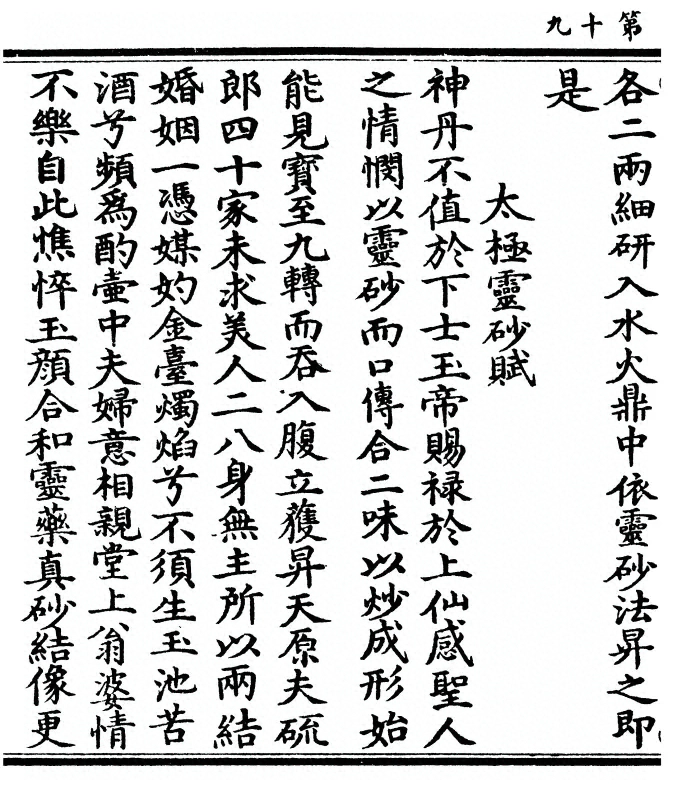 第十九
各二兩細研入水火鼎中依靈砂法昇之即
是
太極靈砂賦
神丹不值於下士玉帝賜禄於上仙感聖人
之情憫以靈砂而口傳合二味以炒成形始
能見寳至九轉而吞入腹立獲昇天原夫硫
郎四十家未求美人二八身無主所以兩結
婚姻一憑媒妁金臺燭焰兮不須生玉池苦
酒兮頻爲酌壷中夫婦意相親堂上翁婆情
不樂自此憔悴玉顔合和靈藥真砂結像更